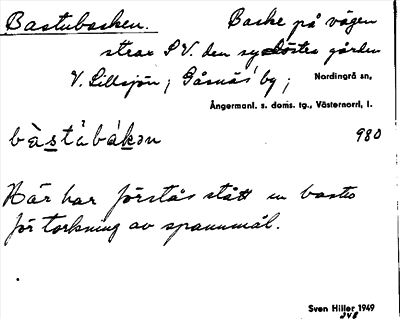 Bastubacken. Backe på vägen
strax S V. den sydöstra gården
V. Lillsjön, Gåsnäs by; Nordingrå sn,
Ångermanl. s. doms. tg., Västernorrl. l.
bàstubákən 980
Här har förstås stått en bastu
för torkning av spannmål.
Sven Hiller 1949
248